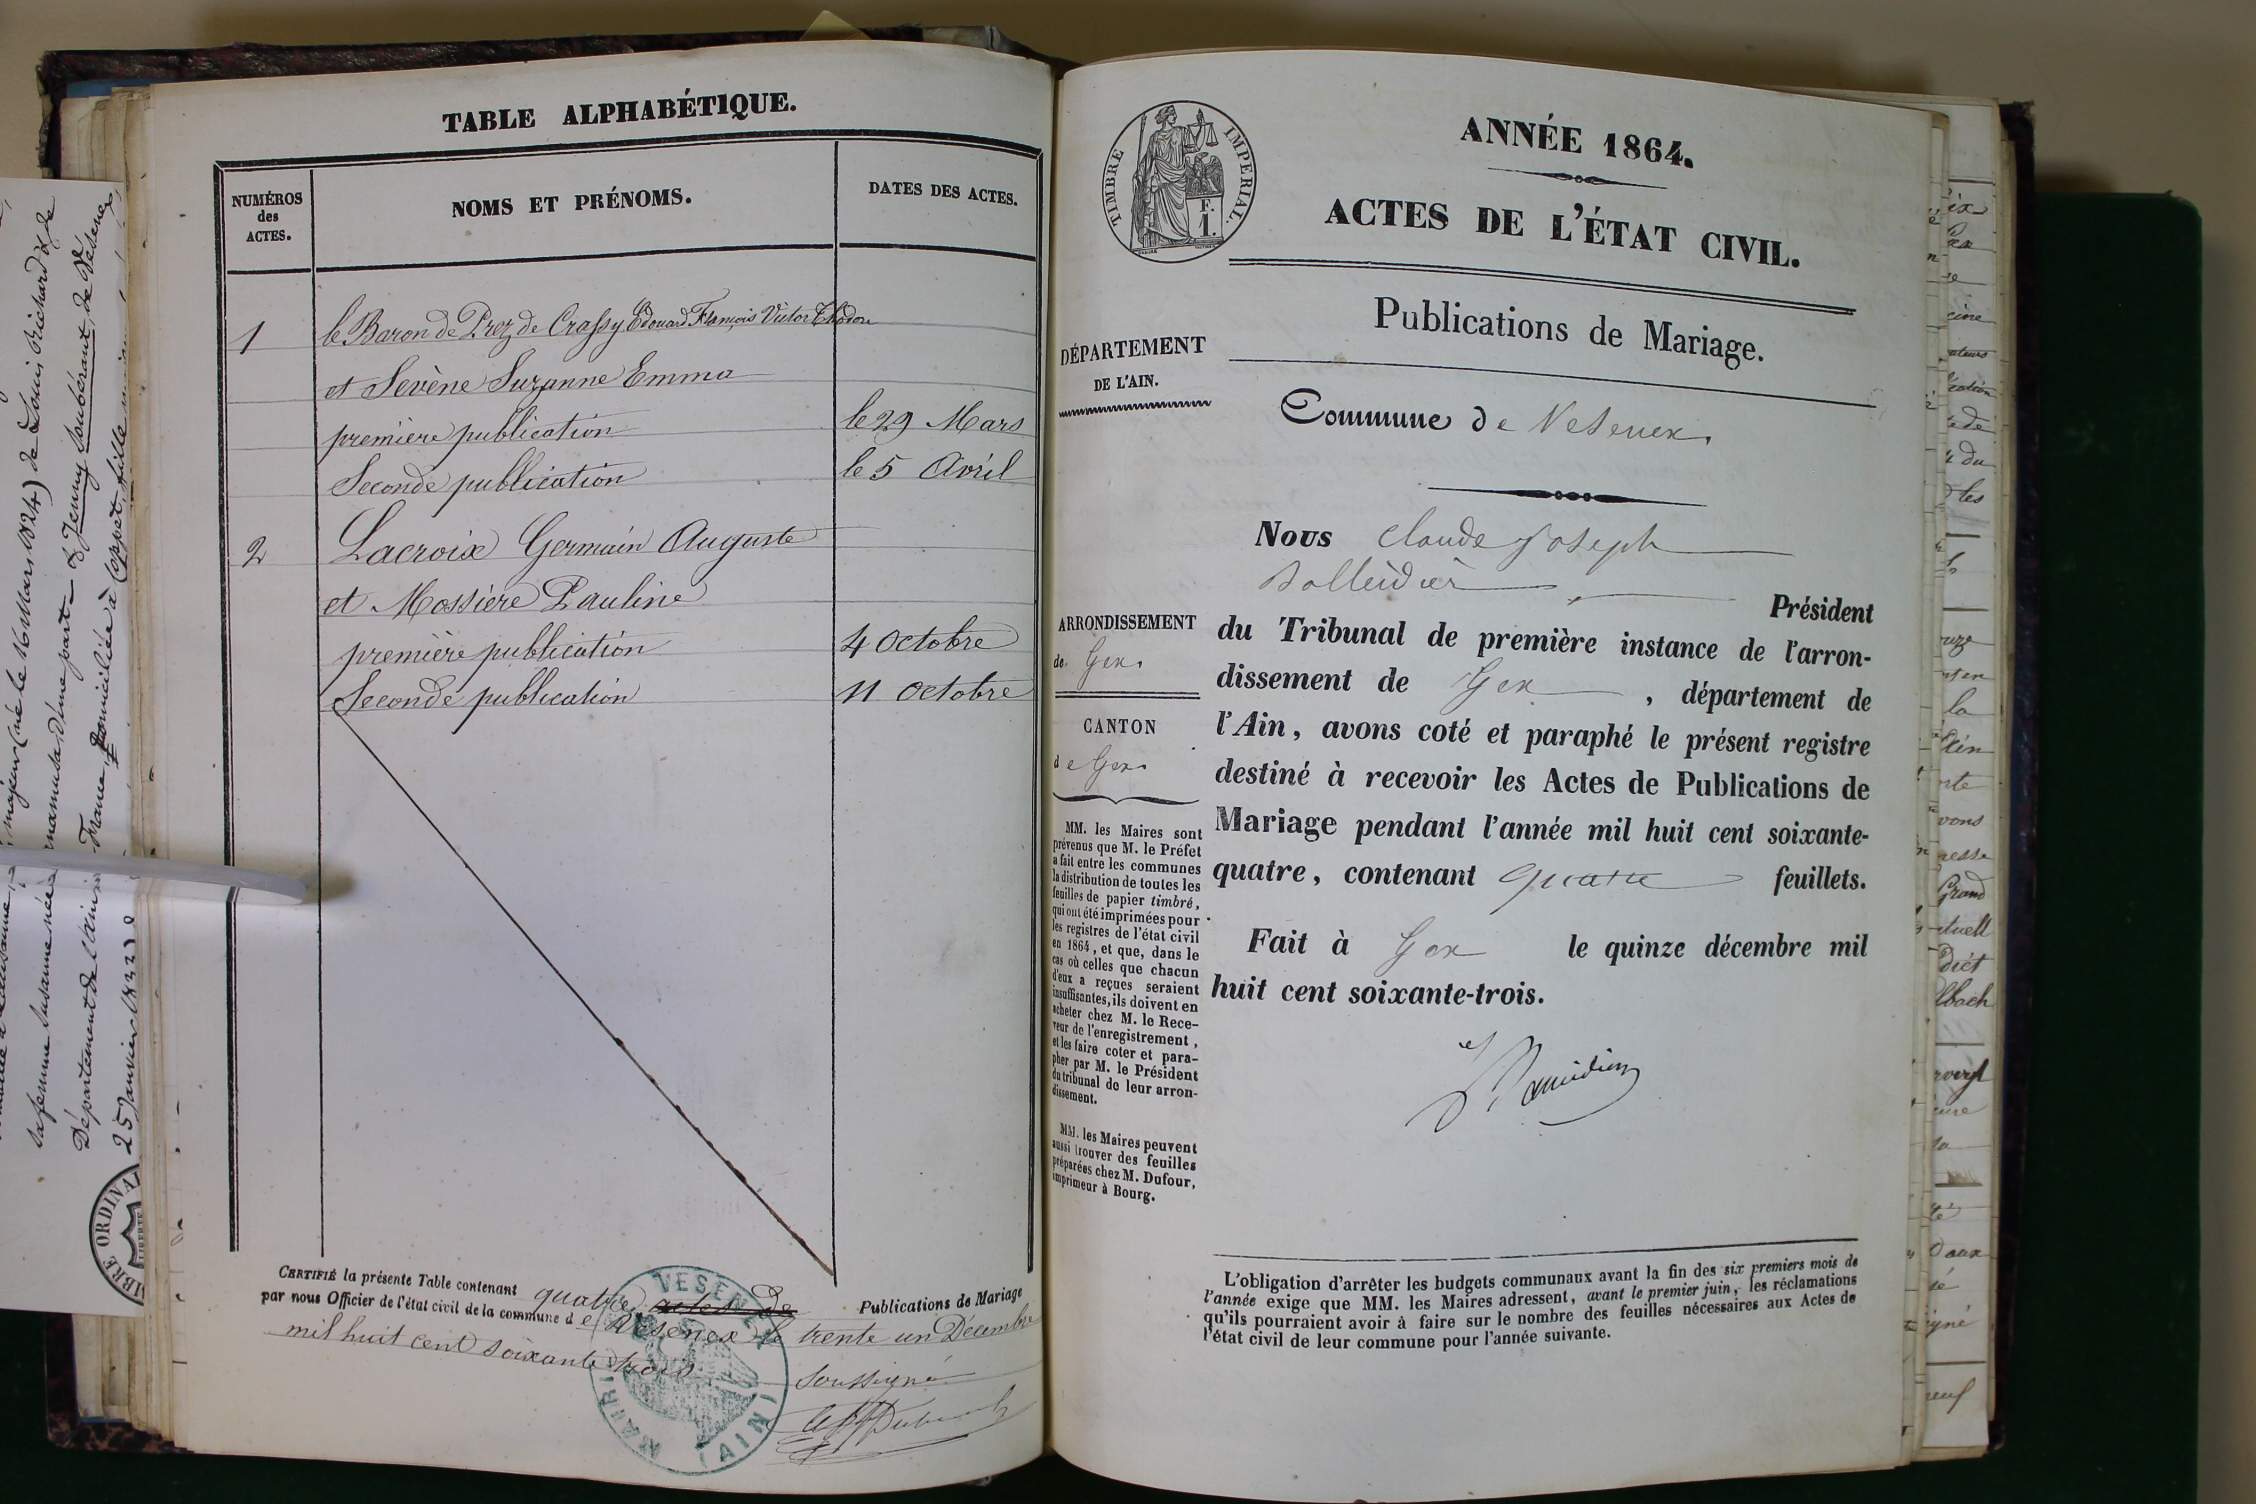 TABLE ALPHABÉTIQUE.
NUMÉROS
des
ACTES.
NOMS ET PRÉNOMS.
DATES DES ACTES.
1
le Baron de Prez de Crassy Edouard François Victor Théodore
et Sevène Suzanne Emma
première publication
le 29 Mars
Seconde publication
le 5 Avril
2
Lacroix Germain Auguste
et Mossière Pauline
première publication
4 Octobre
Seconde publication
11 Octobre
CERTIFIÉ la présente Table contenant quatre actes de Publications de Mariage
par nous Officier de l'état civil de la commune de Vesenex le trente un Décembre
mil huit cent soixante trois
Soussigné
MAIRIE VESENEX (AIN)
majeur (né le 16 Mars 1824) de Louis Richard & de
sa femme Susanne née Ramusa, d'une part_ & Jenny Soubérant, de Vésenex
Département de l'Ain France domiciliée à Coppet, fille
25 Janvier 1832
TIMBRE IMPÉRIAL.
F.
1.
ANNÉE 1864.
ACTES DE L'ÉTAT CIVIL.
Publications de Mariage.
DÉPARTEMENT
DE L'AIN.
Commune de Vesenex.
ARRONDISSEMENT
de Gex.
CANTON
de Gex.
Nous Claude Joseph
Président
du Tribunal de première instance de l'arron-
dissement de Gex, département de
l'Ain, avons coté et paraphé le présent registre
destiné à recevoir les Actes de Publications de
Mariage pendant l'année mil huit cent soixante-
quatre, contenant quatre feuillets.
Fait à Gex le quinze décembre mil
huit cent soixante-trois.
MM. les Maires sont
prévenus que M. le Préfet
a fait entre les communes
la distribution de toutes les
feuilles de papier timbré,
qui ont été imprimées pour
les registres de l'état civil
en 1864, et que, dans le
cas où celles que chacun
d'eux a reçues seraient
insuffisantes, ils doivent en
acheter chez M. le Rece-
veur de l'enregistrement,
et les faire coter et para-
pher par M. le Président
du tribunal de leur arron-
dissement.
MM. les Maires peuvent
aussi trouver des feuilles
préparées chez M. Dufour,
imprimeur à Bourg.
L'obligation d'arrêter les budgets communaux avant la fin des six premiers mois de
l'année exige que MM. les Maires adressent, avant le premier juin, les réclamations
qu'ils pourraient avoir à faire sur le nombre des feuilles nécessaires aux Actes de
l'état civil de leur commune pour l'année suivante.